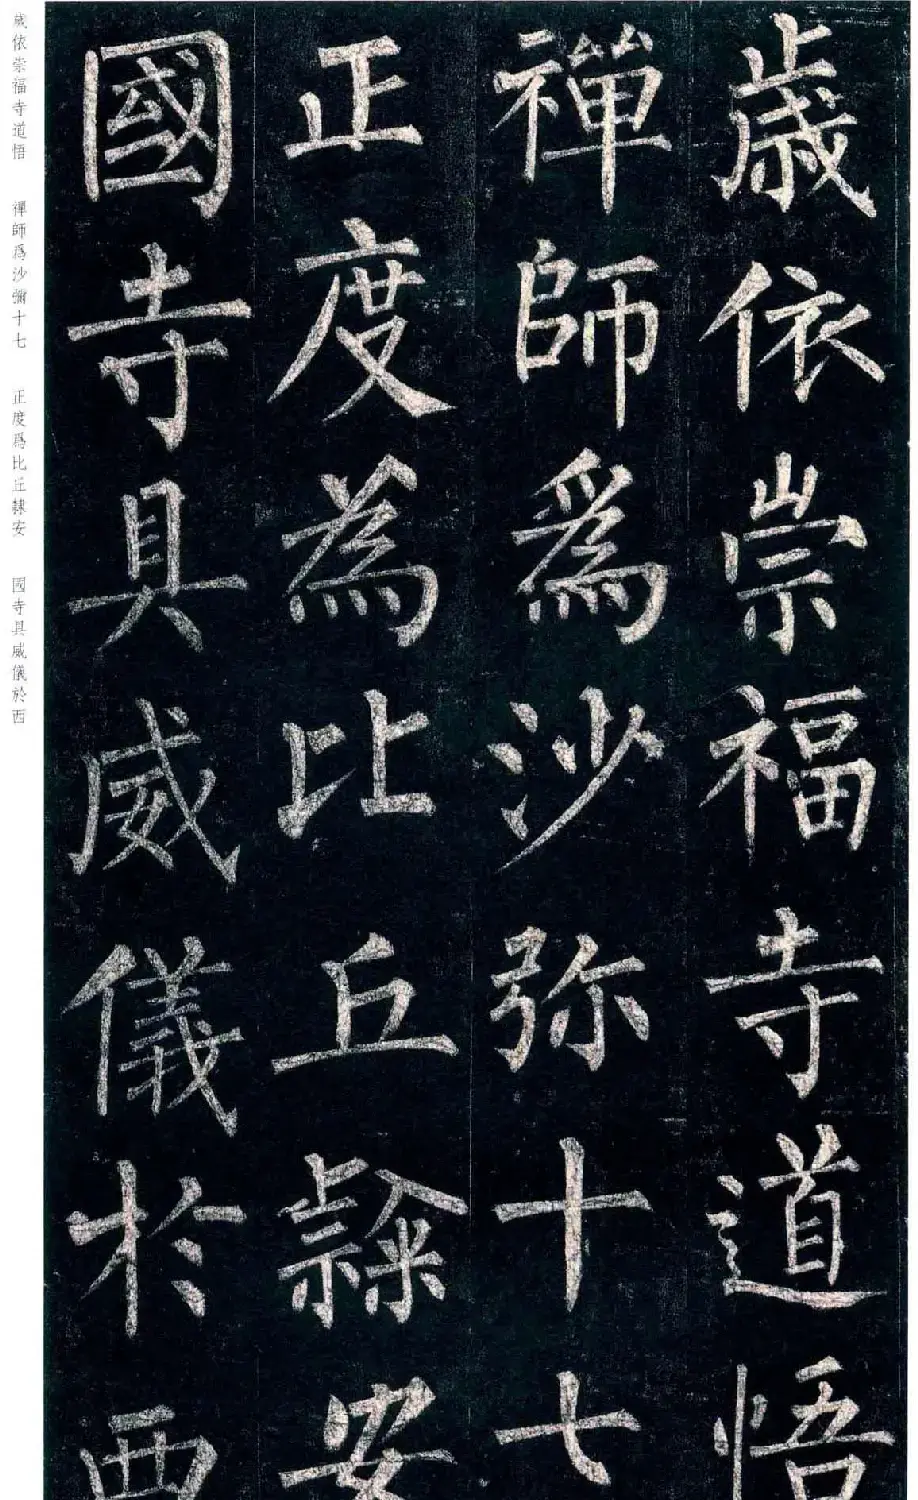 歲依崇福寺道悟
禪師爲沙弥十七
正度為比丘隷安
國寺具威儀於西
歲依崇福寺道悟 禪師爲沙彌十七 正度爲比丘隸安 國寺具威儀於西